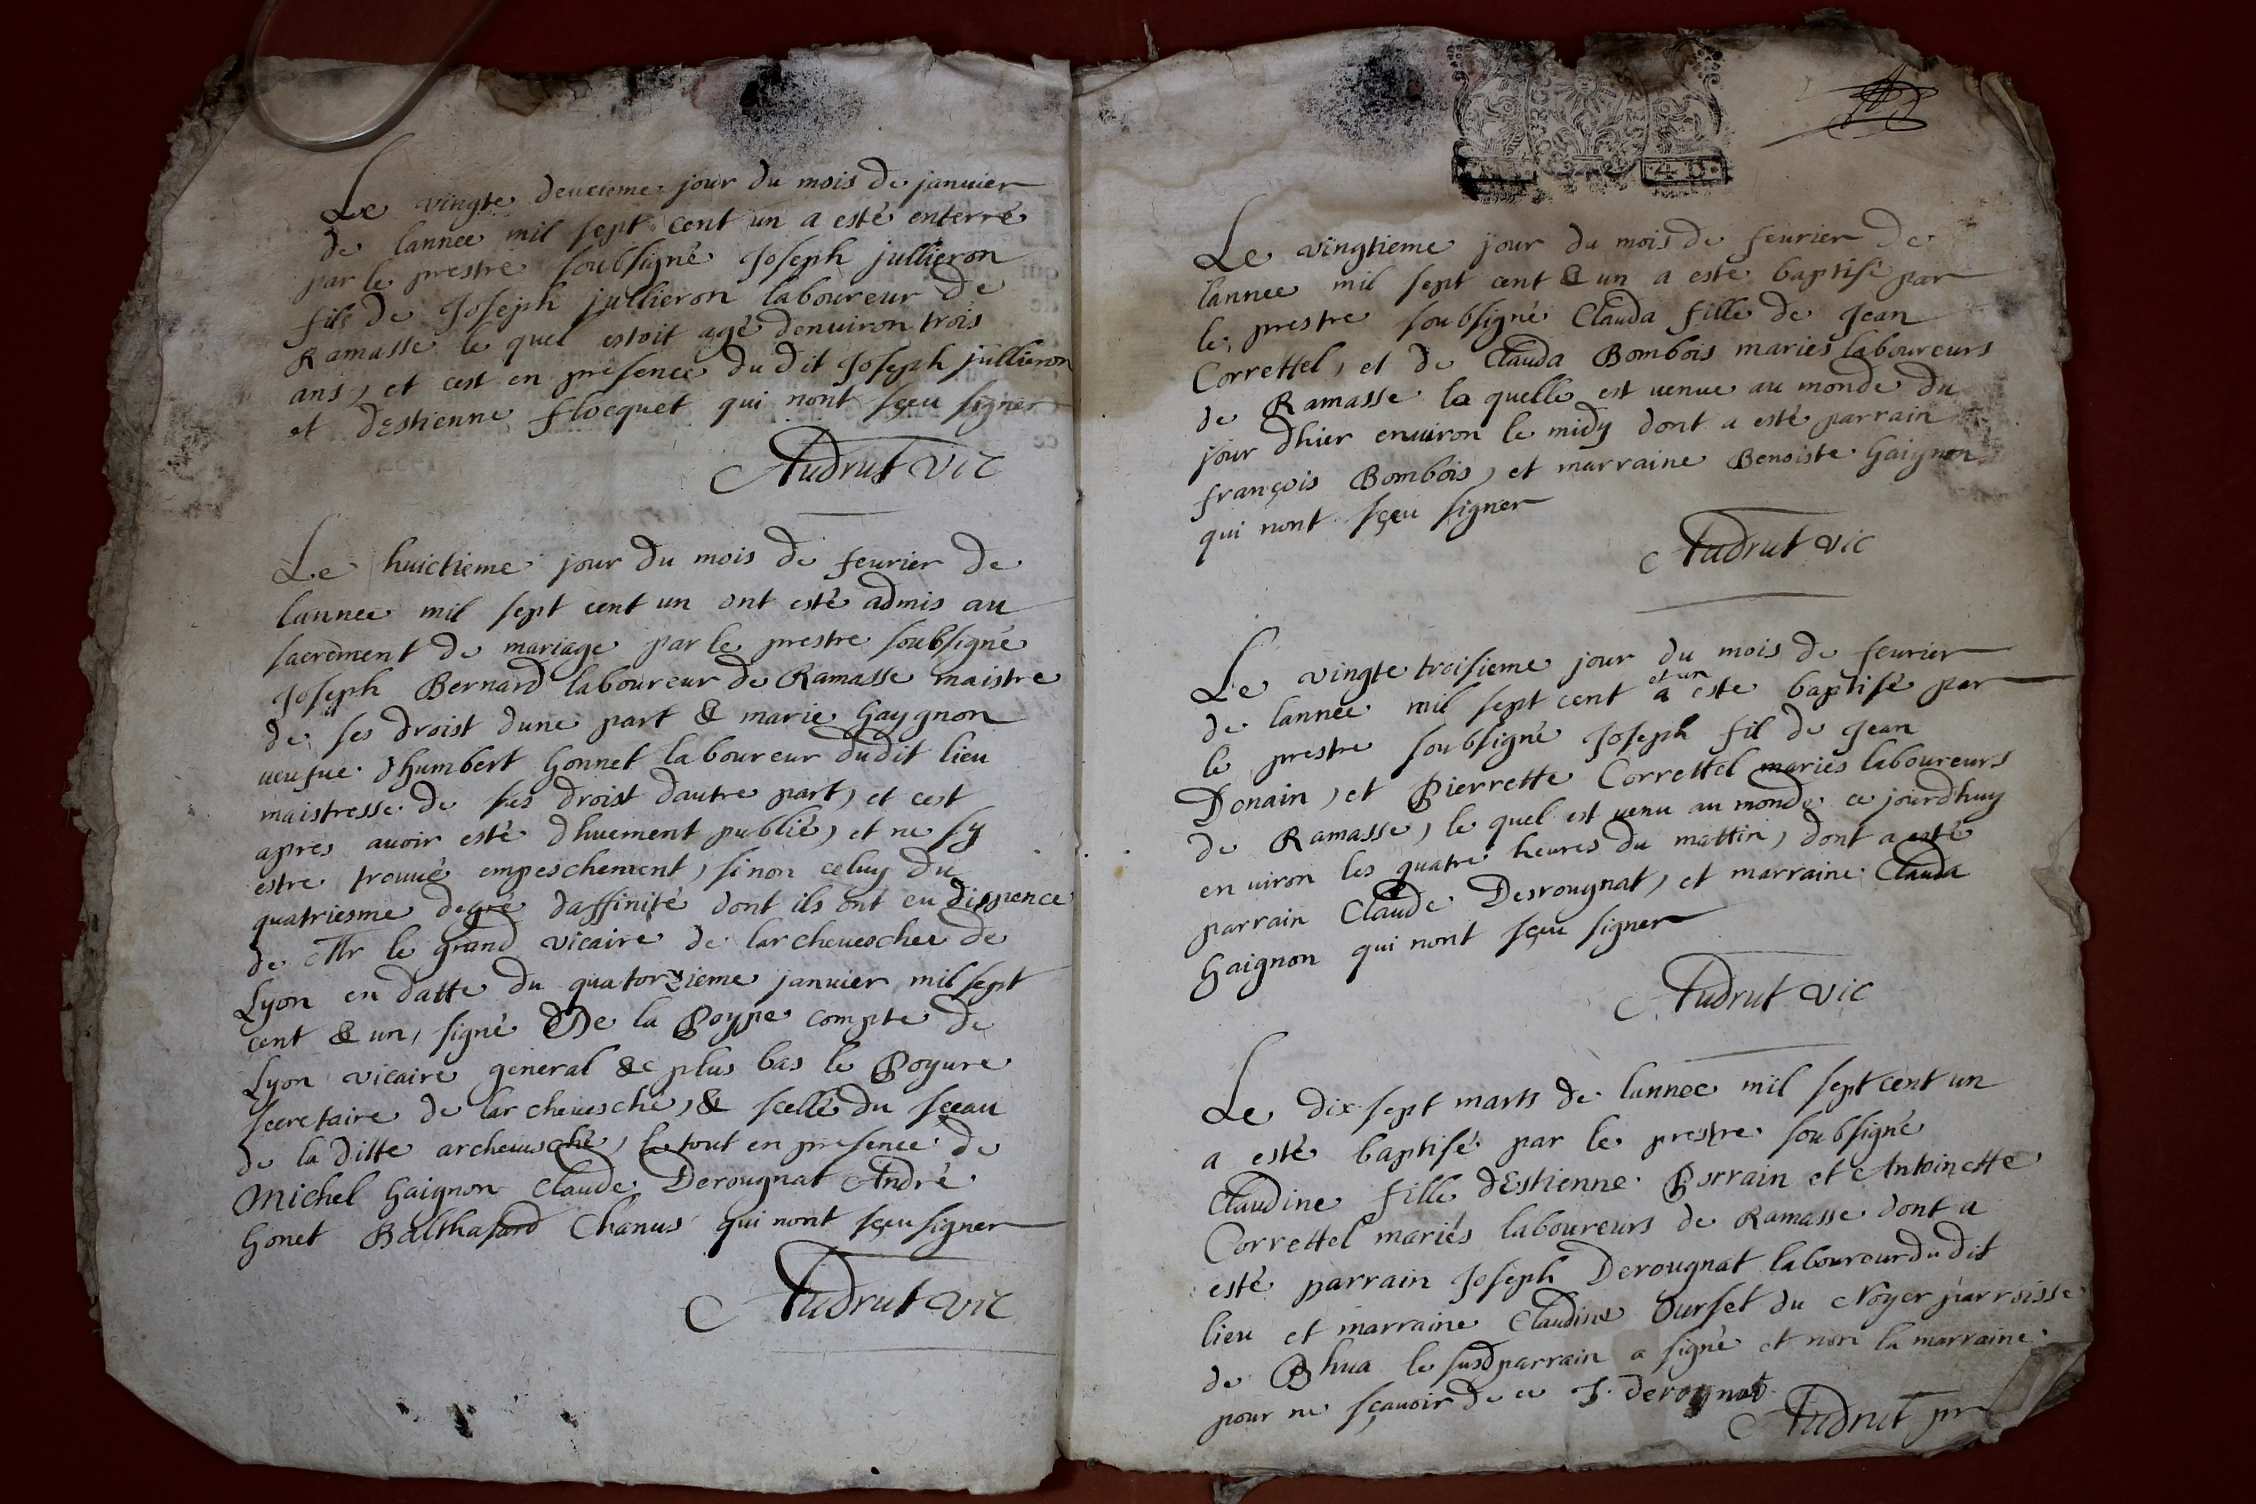 Le vingte deucieme jour du mois de januier
de lannee mil sept cent un a esté enterré
par le prestre soubsigné Joseph jullieron
fils de Joseph jullieron laboureur de
Ramasse le quel estoit agé denuiron trois
ans, et cest en presence du dit Joseph jullieron
et dEstienne flocquet qui nont sçeu signer
Audrut vic
Le huictieme jour du mois de feurier de
lannee mil sept cent un ont esté admis au
sacrement de mariage par le prestre soubsigné
Joseph Bernard laboureur de Ramasse maistre
de ses droist dune part & marie Gaygnon
ueufue dhumbert Gonnet laboureur dudit lieu
maistresse de ses droist dautre part, et cest
apres auoir esté dhuement publié, et ne sy
estre trouué empeschement, sinon celuy du
quatriesme degré daffinité dont ils ont eu dispence
de Mr le grand vicaire de larcheueschee de
Lyon en datte du quatorzieme januier mil sept
cent & un, signé De la Poype compte de
Lyon vicaire general &c plus bas le Poyure
secretaire de larcheuesché, & scellé du sçeau
de la ditte archeuesché, le tout en presence de
Michel Gaignon Claude Derougnat André
Gonet Balthasard Chanus qui nont sçeu signer
Audrut vic
4 D.
Le vingtieme jour du mois de feurier de
lannee mil sept cent & un a esté baptisé par
le prestre soubsigné Clauda fille de Jean
Correttel, et de Clauda Bombois mariés laboureurs
de Ramasse la quelle est uenue au monde du
jour dhier enuiron le midy dont a esté parrain
françois Bombois, et marraine Benoiste Gaignon
qui nont sçeu signer
Audrut vic
Le vingte troisieme jour du mois de feurier
de lannee mil sept cent et un a este baptisé par
le prestre soubsigné Joseph fil de Jean
Donain, et Pierrette Correttel mariés laboureurs
de Ramasse, le quel est uenu au monde ce jourdhuy
enuiron les quatre heures du mattin, dont a esté
parrain Claude Desrougnat, et marraine Clauda
Gaignon qui nont sçeu signer
Audrut vic
Le dix sept marts de lannee mil sept cent un
a esté baptisé par le prestre soubsigné
Claudine fille dEstienne Perrain et Antoinette
Correttel mariés laboureurs de Ramasse dont a
esté parrain Joseph Derougnat laboureur du dit
lieu et marraine Claudine Ourset du Noyer parroisse
de Bhua le susd parrain a signé et non la marraine
pour ne sçauoir de ce J. derognat
Audrut pr